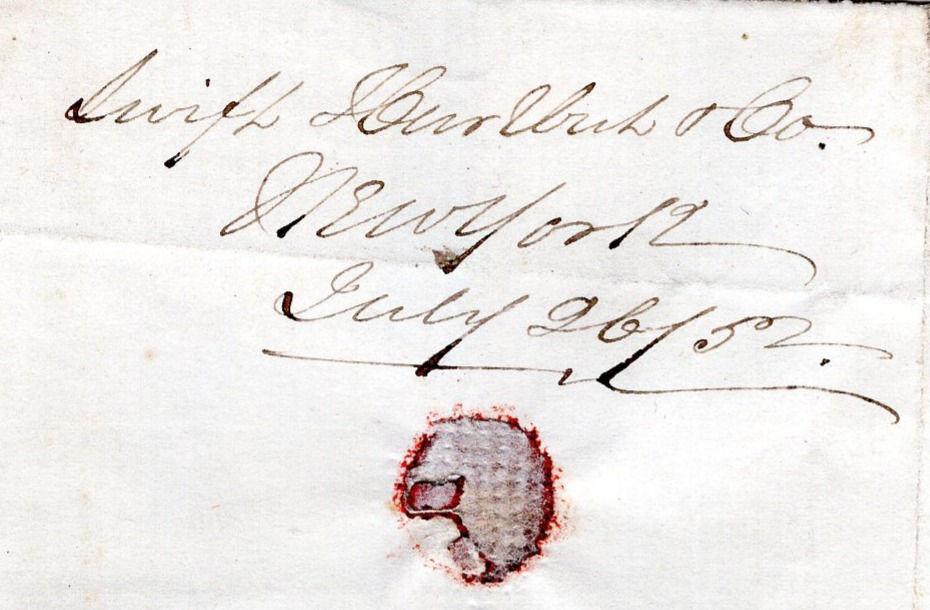 Swift Hurlbut & Co.
New York
July 26/52.